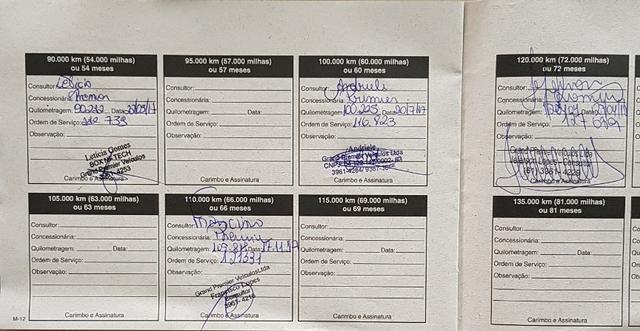 90.000 km (54.000 milhas)
ou 54 meses
Consultor: Leticia
Concessionária: Premier
Quilometragem: Data:
Ordem de Serviço: 738
Observação:
Leticia Gomes
BOX HI-TECH
Grand Premier Veículos
Carimbo e Assinatura
95.000 km (57.000 milhas)
ou 57 meses
Consultor:
Concessionária:
Quilometragem: Data:
Ordem de Serviço:
Observação:
Carimbo e Assinatura
100.000 km (60.000 milhas)
ou 60 meses
Consultor: Andriele
Concessionária: Premier
Quilometragem: 100.225 Data: 20/7/17
Ordem de Serviço: 116.423
Observação:
Andriele
Grand Premier Veículos Ltda
Carimbo e Assinatura
120.000 km (72.000 milhas)
ou 72 meses
Consultor:
Concessionária:
Quilometragem: Data:
Ordem de Serviço:
Observação:
Carimbo e Assinatura
105.000 km (63.000 milhas)
ou 63 meses
Consultor:
Concessionária:
Quilometragem: Data:
Ordem de Serviço:
Observação:
Carimbo e Assinatura
110.000 km (66.000 milhas)
ou 66 meses
Consultor:
Concessionária: Premier
Quilometragem: Data:
Ordem de Serviço: 121331
Observação:
Grand Premier Veículos Ltda
Francisco Lopes
Consultor
3961-4218
Carimbo e Assinatura
115.000 km (69.000 milhas)
ou 69 meses
Consultor:
Concessionária:
Quilometragem: Data:
Ordem de Serviço:
Observação:
Carimbo e Assinatura
135.000 km (81.000 milhas)
ou 81 meses
Consultor:
Concessionária:
Quilometragem: Data:
Ordem de Serviço:
Observação:
Carimbo e Assinatura
M-12